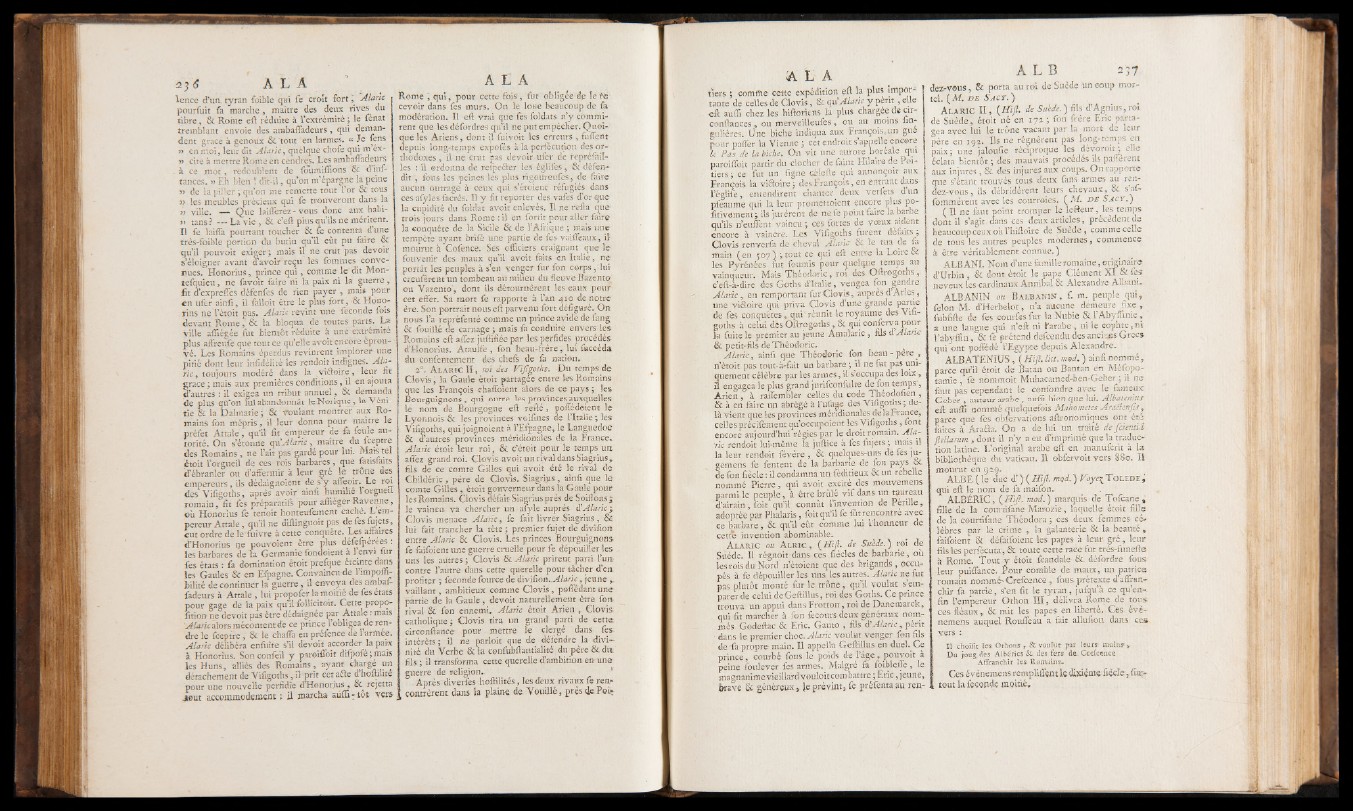 236 A L A
lence d'un tyran foible qui se croît fort; Alaric
poursuit sa marche, maître des deux rives du
tibre, & Rome est réduite à l'extrêmité; le sénat
tremblant envoie des ambassadeurs, qui demandent
grace à genoux & tout en larmes. « Je sens
» en moi, leur dit Alaric, quelque chose qui m'excite
» à mettre Rome en cendres. Les ambassadeurs
à ce mot, redoublent de soumissions & d'instances.
» Eh bien ! dit-il, qu'on m'épargne la peine
» de la piller, qu'on me remette tout l'or & tous
» les meubles précieux qui se trouveront dans la
» ville. — Que laisserez-vous donc aux habitans?
— La vie, & c'est plus qu'ils ne méritent.
Il se laissa pourtant toucher & se contenta d'une
très-foible portion du butin qu'il eût pu faire &
qu'il pouvoit exiger; mais il ne crut pas devoir
s'éloigner avant d'avoir reçu les sommes convenues.
Honorius, prince qui, comme le dit Montesquieu,
ne savoit faire ni la paix ni la guerre,
fit d'expresses défenses de rien payer, mais pour
en user ainsi, il falloit être le plus fort, & Honorius
ne l'étoit pas. Alaric revint une seconde fois
devant Rome, & la bloqua de toutes parts. La
ville assiégée fut bientôt réduite à une extrêmité
plus affreuse que tout ce qu'elle avoit encore éprouvé.
Les Romains éperdus revinrent implorer une
pitié dont leur infidélité les rendoit indignes. Alaric,
toujours modéré dans la victoire, leur fit
grace; mais aux premières conditions, il en ajouta
d'autres : il exigea un tribut annuel, & demanda
de plus qu'on lui abandonnât le Norique, la Vénitie
& la Dalmatie; & voulant montrer aux Romains
son mépris, il leur donna pour maître le
préfet Attale, qu'il fit empereur de sa seule autorité.
On s'étonne qu'Alaric, maître du sceptre
des Romains, ne l'ait pas gardé pour lui. Mais tel
étoit l'orgueil de ces rois barbares, que satisfaits
d'ébranler ou d'affermir à leur gré le trône des
empereurs, ils dédaignoient de s'y asseoir. Le roi
des Visigoths, après avoir ainsi humilié l'orgueil
romain, fit ses préparatifs pour assiéger Ravenne,
où Honorius se tenoit honteusement caché. L'empereur
Attale, qu'il ne distinguoit pas de ses sujets,
eut ordre de le suivre à cette conquête. Les affaires
d'Honorius ne pouvoient être plus désespérées :
les barbares de la Germanie fondoient à l'envi sur
ses états : sa domination étoit presque éteinte dans
les Gaules & en Espagne. Convaincu de l'impossibilité
de continuer la guerre, il envoya des ambassadeurs
à Attale, lui proposer la moitié de ses états
pour gage de la paix qu'il sollicitoit. Cette proposition
ne devoit pas être dédaignée par Attale : mais
Alaric alors mécontent de ce prince l'obligea de rendre
le sceptre, & le chassa en présence de l'armée.
Alaric délibéra ensuite s'il devoit accorder la paix
à Honorius. Son conseil y paroissoit disposé; mais
les Huns, alliés des Romains, ayant chargé un
détachement de Visigoths, il prit cet acte d'hostilité
pour une nouvelle perfidie d'Honorius, & rejetta
tout accommodement : il marcha aussi-tôt vers
A L A
Rome, qui, pour cette fois, fut obligée de le recevoir
dans ses murs. On le loue beaucoup de sa
modération. Il est vrai que ses soldats n'y commirent
que les désordres qu'il ne put empêcher. Quoique
les Ariens, dont il suivoit les erreurs, fussent
depuis long-temps exposés à la persécution des orthodoxes,
il ne crut pas devoir user de représailles
: il ordonna de respecter les églises, & défendit,
sous les peines les plus rigoureuses, de faire
aucun outrage à ceux qui s'étoient réfugiés dans
ces asyles sacrés. Il y fit reporter des vases d'or que
la cupidité du soldat avoit enlevés. Il ne resta que
trois jours dans Rome : il en sortit pour aller faire
la conquête de la Sicile & de l'Afrique; mais une
tempête ayant brisé une partie de ses vaisseaux, il
mourut à Cosence. Ses officiers craignant que le
souvenir des maux qu'il avoit faits en Italie, ne
portât les peuples à s'en venger sur son corps, lui
creusèrent un tombeau au milieu du fleuve Bazento
ou Vazento, dont ils détournèrent les eaux pour
cet effet. Sa mort se rapporte à l'an 410 de notre
ère. Son portrait nous est parvenu fort défiguré. On
nous l'a représenté comme un prince avide de sang
& souillé de carnage; mais sa conduite envers les
Romains est assez justifiée par les perfides procédés
d'Honorius. Ataulfe, son beau-frère, lui succéda
du consentement des chefs de sa nation.
2°. ALARIC II, roi des Visigoths. Du temps de
Clovis, la Gaule étoit partagée entre les Romains
que les François chassoient alors de ce pays; les
Bourguignons, qui outre les provinces auxquelles
le nom de Bourgogne est resté, possédoient le
Lyonnois & les provinces voisines de l'Italie; les
Visigoths, qui joignoient à l'Espagne, le Languedoc
& d'autres provinces méridionales de la France.
Alaric étoit leur roi, & c'étoit pour le temps un
assez grand roi. Clovis avoit un rival dans Siagrius,
fils de ce comte Gilles qui avoit été le rival de
Childéric, père de Clovis. Siagrius, ainsi que le
comte Gilles, étoit gouverneur dans la Gaule pour
les Romains. Clovis défait Siagrius près de Soissons;
le vaincu va chercher un asyle auprès d'Alaric;
Clovis menace Alaric, se fait livrer Siagrius, &
lui fait trancher la tête; premier sujet de division
entre Alaric & Clovis. Les princes Bourguignons
se faisoient une guerre cruelle pour se dépouiller les
uns les autres; Clovis & Alaric prirent parti l'un
contre l'autre dans cette querelle pour tâcher d'en
profiter; seconde source de division. Alaric, jeune,
vaillant, ambitieux comme Clovis, possédant une
partie de la Gaule, devoit naturellement être son
rival & son ennemi. Alaric étoit Arien, Clovis
catholique; Clovis tira un grand parti de cette
circonstance pour mettre le clergé dans ses
intérêts; il ne parloit que de défendre la divinité
du Verbe & la consubstantialité du père & du
fils; il transforma cette querelle d'ambition en une
guerre de religion.
Après diverses hostilités, les deux rivaux se rencontrèrent
dans la plaine de Vouillé, près de Poitiers;
A L A
tiers; comme cette expédition est la plus importante
de celles de Clovis, & qu'Alaric y périt, elle
est aussi chez les historiens la plus chargée de circonstances,
ou merveilleuses, ou au moins singulières.
Une biche indiqua aux François un gué
pour passer la Vienne; cet endroit s'appelle encore
le Pas de la biche. On vit une aurore boréale qui
paroissoit partir du clocher de saint Hilaire de Poitiers;
ce fut un signe céleste qui annonçoit aux
François la victoire; des François, en entrant dans
l'église, entendirent chanter deux versets d'un
pseaume qui la leur promettoient encore plus positivement;
ils jurèrent de ne se point faire la barbe
qu'ils n'eussent vaincu; ces sortes de vœux aident
encore à vaincre. Les Visigoths furent défaits;
Clovis renversa de cheval Alaric & le tua de sa
main (en 507); tout ce qui est entre la Loire &
les Pyrénées fut soumis pour quelque temps au
vainqueur. Mais Théodoric, roi des Ostrogoths,
c'est-à-dire des Goths d'Italie, vengea son gendre
Alaric, en remportant sur Clovis, auprès d'Arles,
une victoire qui priva Clovis d'une grande partie
de ses conquêtes, qui réunit le royaume des Visigoths
à celui des Ostrogoths, & qui conserva pour
la suite le premier au jeune Amalaric, fils d'Alaric
& petit-fils de Théodoric.
Alaric, ainsi que Théodoric son beau-père,
n'étoit pas tout-à-fait un barbare; il ne fut pas uniquement
célèbre par les armes, il s'occupa des loix,
il engagea le plus grand jurisconsulte de son temps,
Arien, à rassembler celles du code Théodosien,
& à en faire un abrégé à l'usage des Visigoths; delà
vient que les provinces méridionales de la France,
celles précisément qu'occupoient les Visigoths, sont
encore aujourd'hui régies par le droit romain. Alaric
rendoit lui-même la justice à ses sujets; mais il
la leur rendoit sévère, & quelques-uns de ses jugemens
se sentent de la barbarie de son pays &
de son siècle : il condamna un séditieux & un rébelle
nommé Pierre, qui avoit excité des mouvemens
parmi le peuple, à être brûlé vif dans un taureau
d'airain, soit qu'il connût l'invention de Pérille,
adoptée par Phalaris, soit qu'il se fût rencontré avec
ce barbare, & qu'il eût comme lui l'honneur de
cette invention abominable.
ALARIC ou ALRIC, (Hist. de Suède.) roi de
Suède. Il régnoit dans ces siècles de barbarie, où
les rois du Nord n'étoient que des brigands, occupés
à se dépouiller les uns les autres. Alaric ne fut
pas plutôt monté sur le trône, qu'il voulut s'emparer
de celui de Gestillus, roi des Goths. Ce prince
trouva un appui dans Frotton, roi de Danemarck,
qui fit marcher à son secours deux généraux nommés
Godestac & Eric. Gauto, fils d'Alaric, périt
dans le premier choc. Alaric voulut venger son fils
de sa propre main. Il appella Gestillus en duel. Ce
prince, courbé sous le poids de l'âge, pouvoit à
peine soulever ses armes. Malgré sa foiblesse, le
magnanime vieillard vouloit combattre; Eric, jeune,
brave & généreux, le prévint, se présenta au rendez-vous,
A L B 237
dez-vous, & porta au roi de Suède un coup mortel.
(M. DE SACY.)
ALARIC II, (Hist. de Suède.) fils d'Agnius, roi
de Suède, étoit né en 172; son frère Eric partagea
avec lui le trône vacant par la mort de leur
père en 192. Ils ne régnèrent pas long-temps en
paix; une jalousie réciproque les dévoroit; elle
éclata bientôt; des mauvais procédés ils passèrent
aux injures, & des injures aux coups. On rapporte
que s'étant trouvés tous deux sans armes au rendez-vous,
ils débridèrent leurs chevaux, & s'assommèrent
avec les courroies. (M. DE SACY.)
(Il ne faut point tromper le lecteur, les temps
dont il s'agit dans ces deux articles, précèdent de
beaucoup ceux où l'histoire de Suède, comme celle
de tous les autres peuples modernes, commence
à être véritablement connue.)
ALBANI, Nom d'une famille romaine, originaire
d'Urbin, & dont étoit le pape Clément XI & ses
neveux les cardinaux Annibal & Alexandre Albani.
ALBANIN ou BALBANIN, s. m. peuple qui,
selon M. d'Herbelot, n'a aucune demeure fixe,
subsiste de ses courses sur la Nubie & l'Abyssinie,
a une langue qui n'est ni l'arabe, ni le copte, ni
l'abyssin, & se prétend descendu des anciens Grecs
qui ont possédé l'Egypte depuis Alexandre.
ALBATENIUS, (Hist. litt. mod.) ainsi nommé,
parce qu'il étoit de Batan ou Bantan en Mésopotamie,
se nommoit Muhacamed-ben-Geber; il ne
faut pas cependant le confondre avec le fameux
Geber, auteur arabe, aussi bien que lui. Albatenius
est aussi nommé quelquefois Mahometes Aractensis,
parce que ses observations astronomiques ont été
faites à Aracta. On a de lui un traité de scientiâ
stellarum, dont il n'y a eu d'imprimé que la traduction
latine. L'original arabe est en manuscrit à la
bibliothèque du vatican. Il observoit vers 880. Il
mourut en 929.
ALBE (le duc d') (Hist. mod.) Voyez TOLEDE,
qui est le nom de sa maison.
ALBÉRIC, (Hist. mod.) marquis de Toscane,
fille de la courtisane Marozie, laquelle étoit fille
de la courtisane Théodora; ces deux femmes célèbres
par le crime, la galanterie & la beauté,
faisoient & défaisoient les papes à leur gré, leur
fils les persécuta, & toute cette race fut très-funeste
à Rome. Tout y étoit scandale & désordre sous
leur puissance. Pour comble de maux, un patrice
romain nommé Crescence, sous prétexte d'affranchir
sa patrie, s'en fit le tyran, jusqu'à ce qu'enfin
l'empereur Othon III, délivra Rome de tous
ces fléaux, & mit les papes en liberté. Ces évènemens
auquel Rousseau a fait allusion dans ces
vers :
Il choisit les Othons, & voulut par leurs mains,
Du joug des Albérics & des fers de Crescence
Affranchir les Romains.
Ces évènemens remplissent le dixième siècle, sur-
tout la seconde moitié.